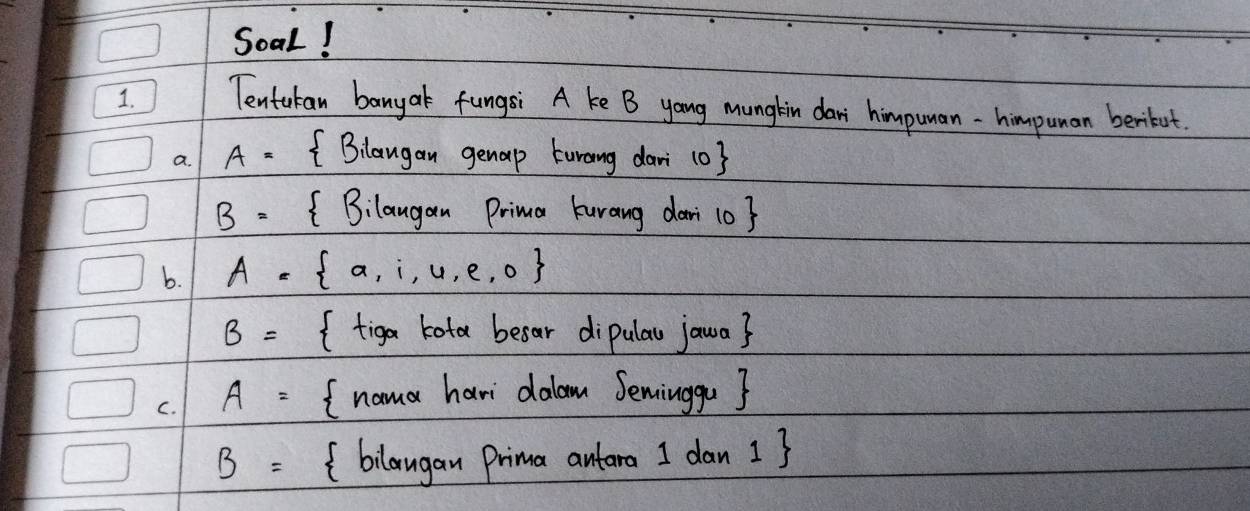 Soal!
1. Tentukan banyak fungsi A ke B yang mungkin dari himpunan - himpunan berikut.
a. A = { Bilangan genap kurang dari 10 }
B = { Bilangan Prima kurang dari 10 }
b. A = { a, i, u, e, o }
B = { tiga kota besar dipulau jawa }
c. A = { nama hari dalam Seminggu }
B = { bilangan Prima antara 1 dan 1 }